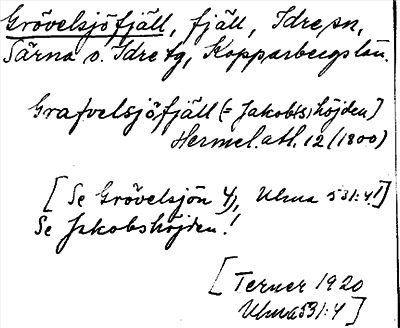 Grövelsjöfjäll, fjäll, Idre sn,
Särna o. Idre tg, Kopparbergs län.
Grafvelsjöfjäll (= Jakob(s)höjden)
Hermel. atl. 12 (1800)
[Se Grövelsjön 4), Ulma 531:4!]
Se Jakobshöjden!
[Terner 1920
Ulma 531:4]